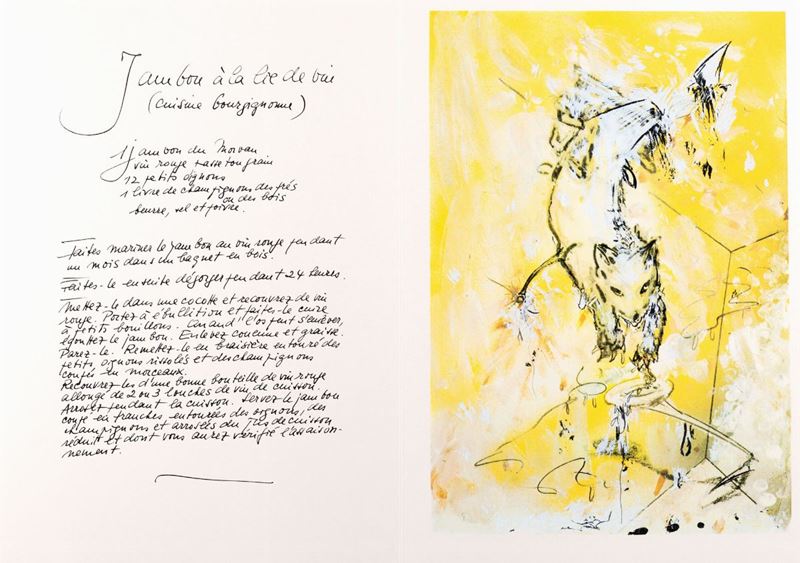 Jambon à la lie de vin
(cuisine bourgignonne)
1 jambon du Morvan
vin rouge passetougrain
12 petits oignons
1 livre de champignons des prés
ou des bois
beurre, sel et poivre.
Faites mariner le jambon au vin rouge pendant
un mois dans un baquet en bois.
Faites-le ensuite dégorger pendant 24 heures.
Mettez-le dans une cocotte et recouvrez de vin
rouge. Portez à ébullition et faites-le cuire
à petits bouillons. Quand l'os peut s'enlever,
égouttez le jambon. Enlevez couenne et graisse.
Parez-le. Remettez-le en braisière entouré des
petits oignons rissolés et des champignons
coupés en morceaux.
Recouvrez-les d'une bonne bouteille de vin rouge
allongé de 2 ou 3 louches de vin de cuisson.
Arrosez pendant la cuisson. Servez le jambon
coupé en tranches, entourées des oignons, des
champignons et arrosées du jus de cuisson
réduit et dont vous aurez vérifié l'assaison-
nement.